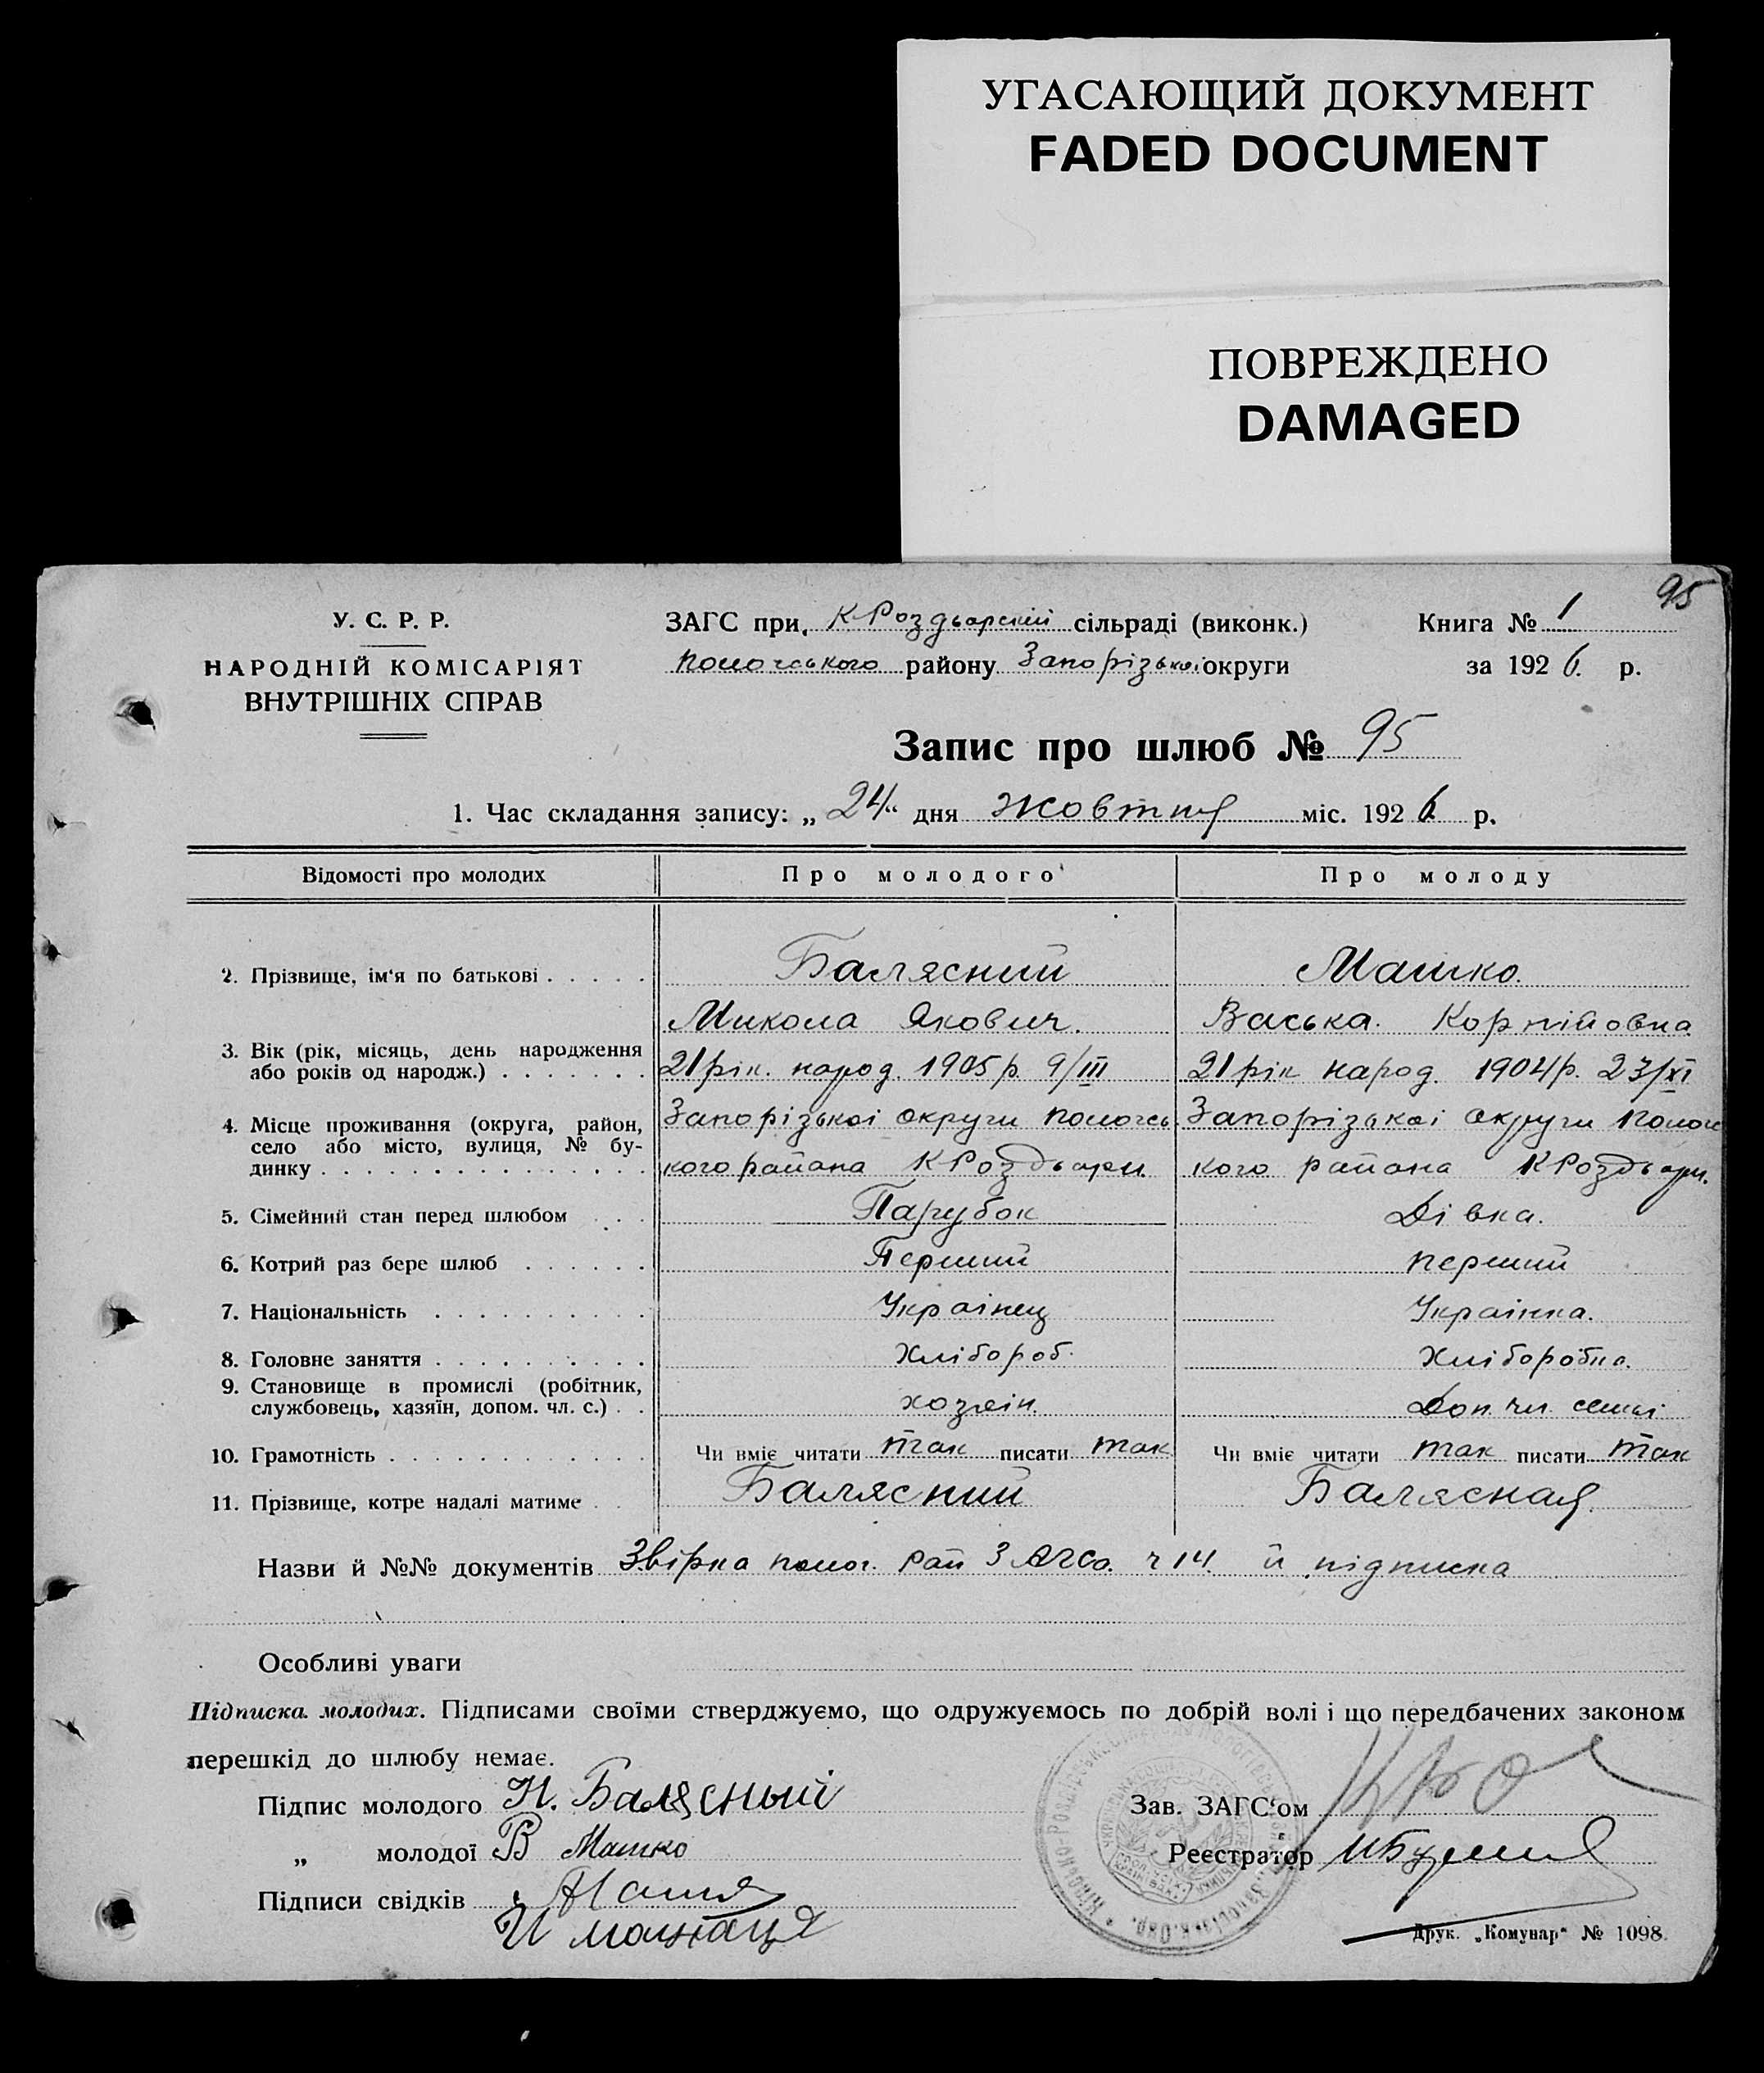 УГАСАЮЩИЙ ДОКУМЕНТ
FADED DOCUMENT
ПОВРЕЖДЕНО
DAMAGED
95
У. С. Р. Р.
НАРОДНІЙ КОМІСАРІЯТ
ВНУТРІШНІХ СПРАВ
ЗАГС при К-Роздьорский сільраді (виконк.)
пологського району Запорізької округи
Книга № 1
за 1926 р.
Запис про шлюб № 95
1. Час складання запису: „24“ дня жовтня міс. 1926 р.
Відомості про молодих Про молодого Про молоду
2. Прізвище, ім'я по батькові Балясний Машко.
Микола Якович. Васька. Корнійовна
3. Вік (рік, місяць, день народження або років од народж.) 21 рік. народ. 1905 р. 9/III 21 рік народ. 1904 р. 23/XI
4. Місце проживання (округа, район, село або місто, вулиця, № будинку Запорізькоі округи пологсь Запорізькоі округи пологс
кого района К Роздьори. кого района К Роздьори.
5. Сімейний стан перед шлюбом Парубок Дівка.
6. Котрий раз бере шлюб Перший перший
7. Національність Украінец Украінка.
8. Головне заняття Хлібороб. Хліборобка.
9. Становище в промислі (робітник, службовець, хазяїн, допом. чл. с.) хозяін. Доп. чл. семьі
10. Грамотність Чи вміє читати так писати так Чи вміє читати так писати так
11. Прізвище, котре надалі матиме Балясний Балясная.
Назви й №№ документів Звірка полог. рай ЗАГСо. ч 14. й підписка
Особливі уваги
Підписка молодих. Підписами своїми стверджуємо, що одружуємось по добрій волі і що передбачених законом
перешкід до шлюбу немає.
Підпис молодого Н. Балясный
„ молодої В Машко
Підписи свідків
Зав. ЗАГС'ом
Реєстратор
Друк. „Комунар“ № 1098.